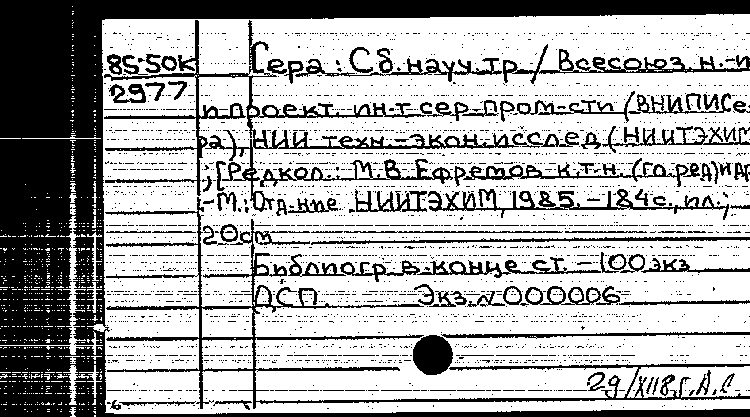 85-50К Сера : Сб. науч. тр / Всесоюз. н.-и
2977
и проект. ин-т сер. пром-сти (ВНИПИСе-
ра), НИИ техн.-экон. исслед (НИИТЭХИМ
; [Редкол.: М.В. Ефремов к.т.н. (гл. ред) и др
-М.: Отд-ние НИИТЭХИМ, 1985. - 184с., ил.;
20см
Библиогр в конце ст. - 100 экз
ДСП. Экз. N 000006
29/XII 85г. А.С.